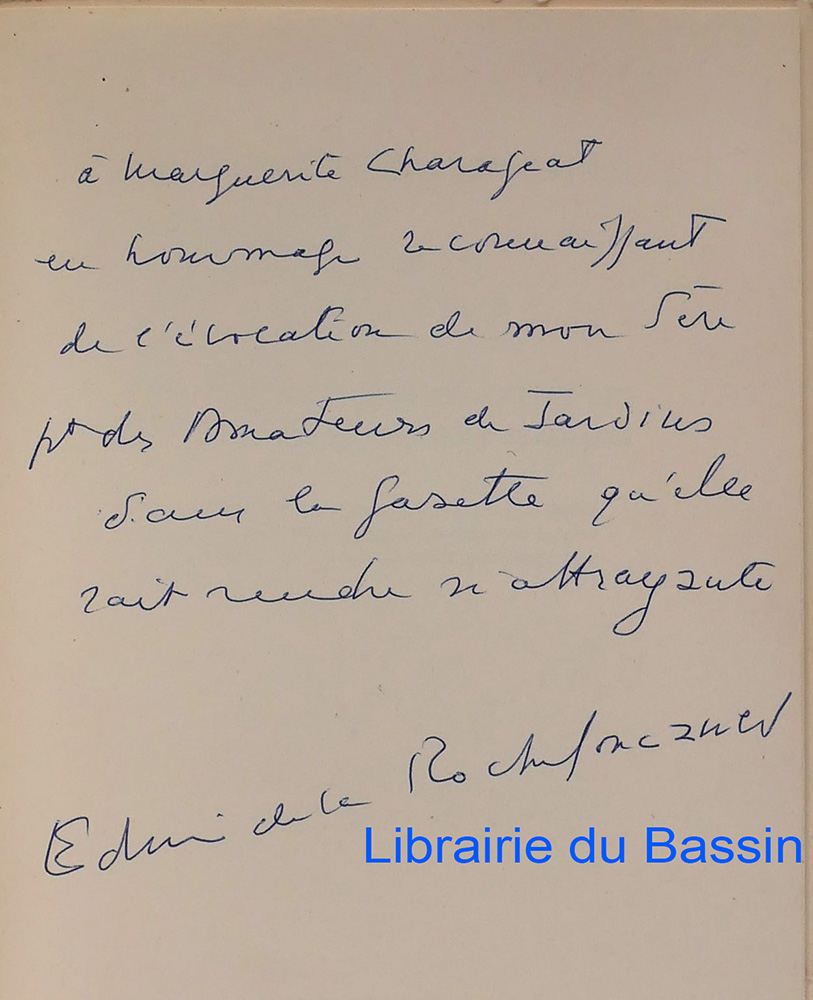 à Marguerite Charageat
en hommage reconnaissant
de l'évocation de mon Père
pt des Amateurs de Jardins
dans la gazette qu'elle
sait rendre si attrayante
Edmée de la Rochefoucauld
Librairie du Bassin